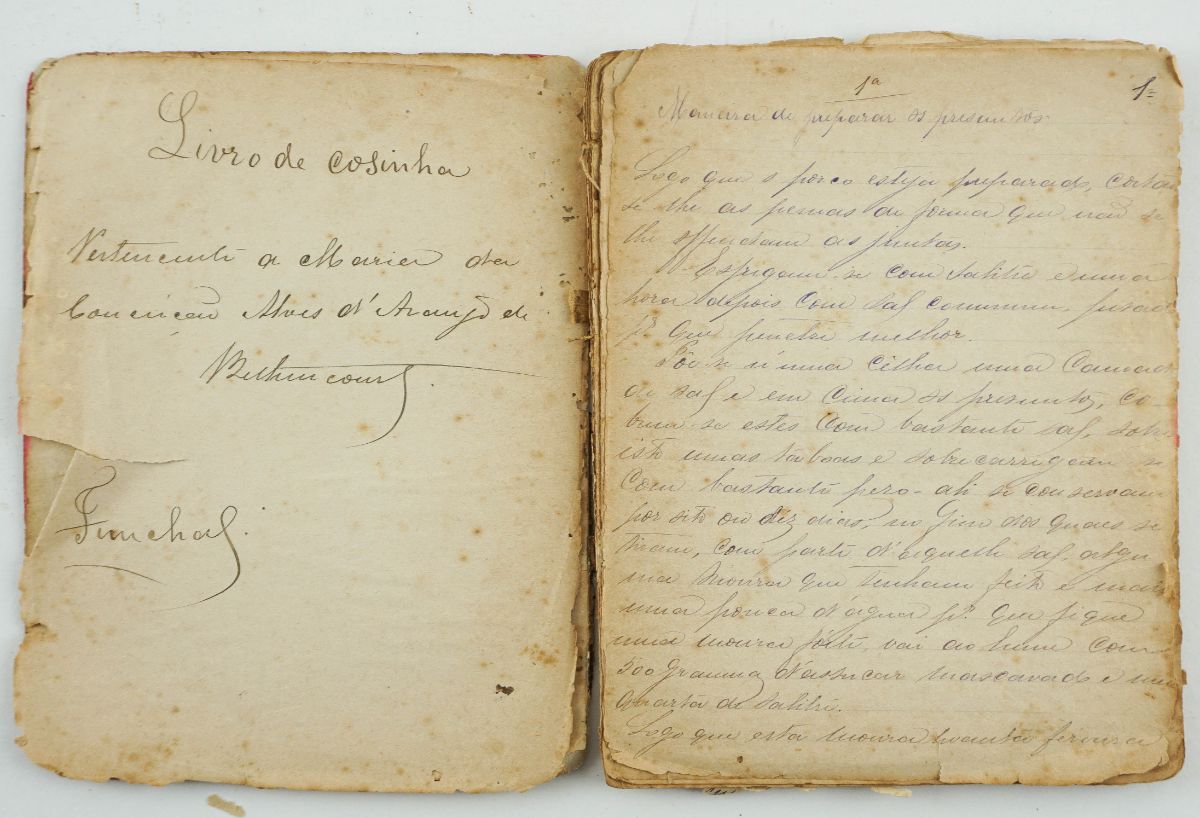 Livro de cosinha
Pertencente a Maria da
Conceicão Alves d'Araujo de
Bethencourt
Funchal
1ª
1=
Maneira de preparar os presuntos
Logo que o porco esteja preparado, corta
se lhe as pernas de forma que não se
lhe offendam as juntas.
Esfregam-se com salitre e uma
hora depois com sal commum,
pª que penetre melhor.
Põe-se n'uma celha uma camada
de sal e em cima os presuntos, co-
brem-se estes com bastante sal, sobre
isto umas taboas e sobrecarregam se
com bastante peso - ali se conservam
por oito ou dez dias, no fim dos quaes se
tiram, com parte d'aquelle sal, algu
ma moura que tenham feito e mais
uma pouca d'água pª que fique
uma moura forte, vai ao lume com
500 gramma d'assucar mascavado e uma
quarta de salitre.
Logo que esta moura levanta fervura